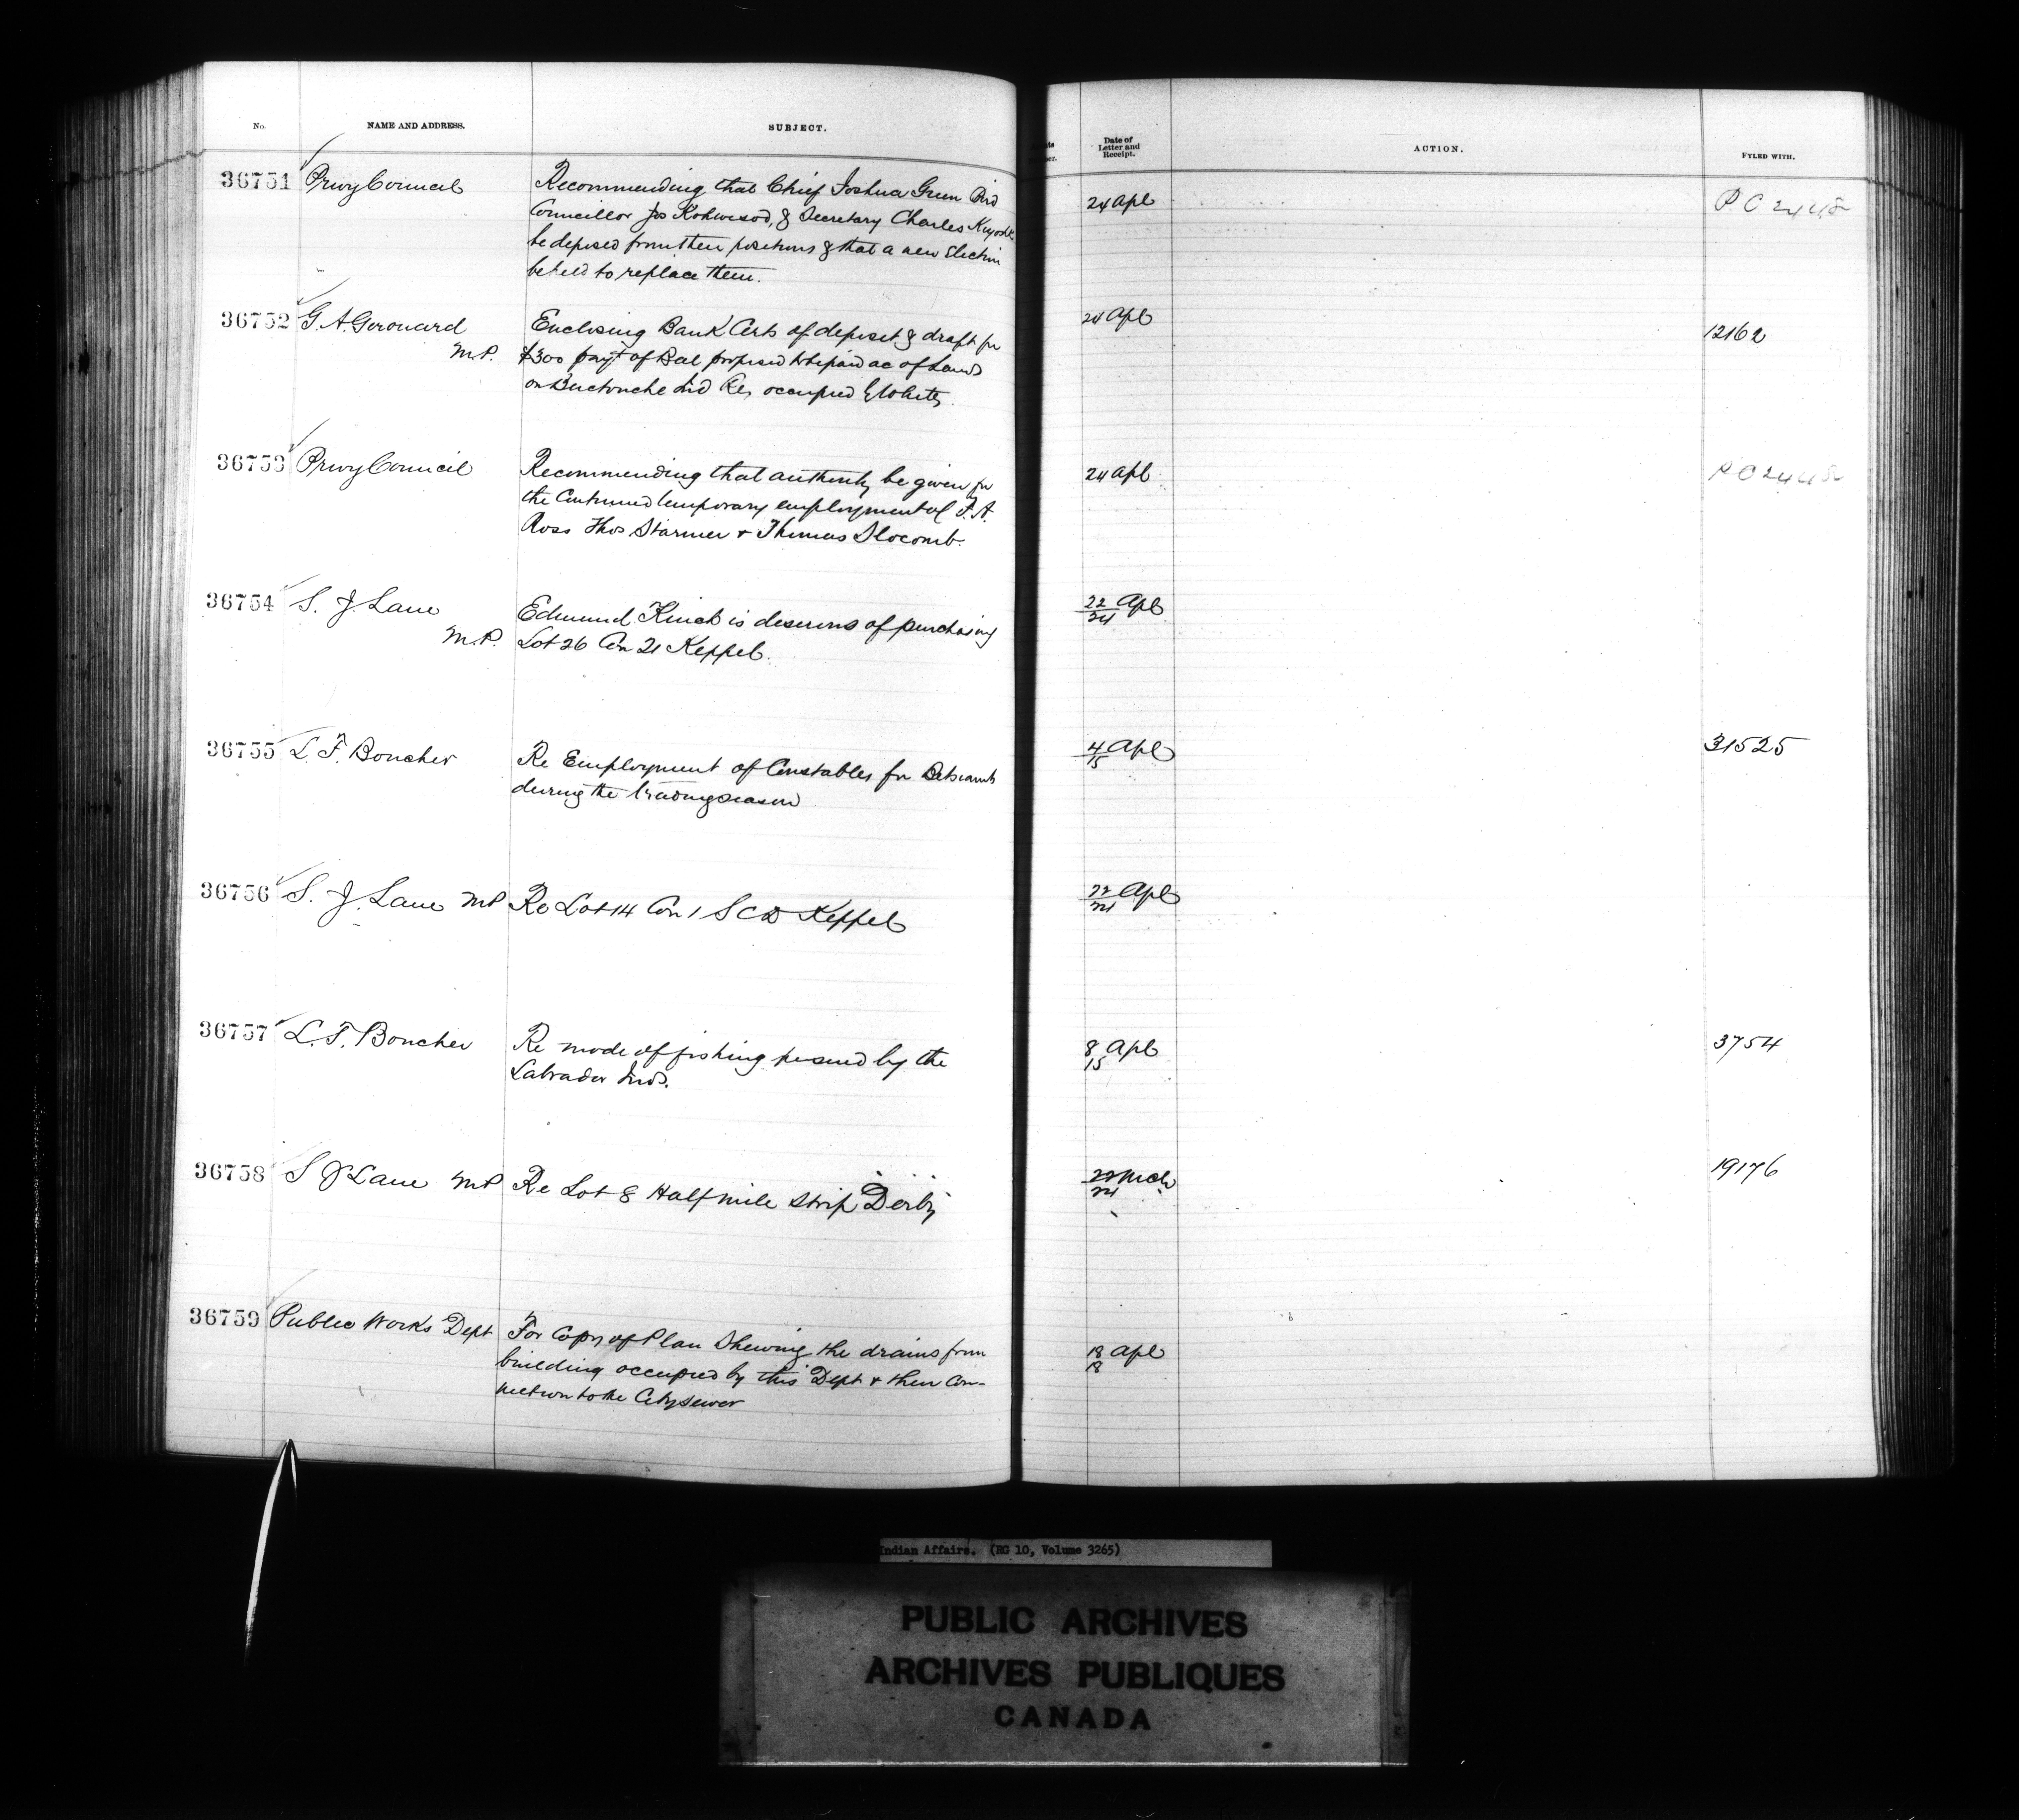 No. NAME AND ADDRESS. SUBJECT. Date of Letter and Receipt. ACTION. FYLED WITH.
36751 Privy Council Recommending that Chief Joshua Green Bird 24 Apl P C 2448
Councillor Jos & Secretary Charles
be deposed from their positions & that a new Election
be held to replace them.
36752 G. A. Gerouard Enclosing Bank Certs of deposit & draft for 24 Apl 12162
M.P. $300 payt of Bal proposed to be paid ac of Lands
on Buctouche Ind Res occupied by Whites
36753 Privy Council Recommending that authority be given for 24 Apl P C 2448
the Continued temporary employment of F. A.
Ross Thos Starmer & Thomas Slocomb.
36754 S. J. Lane Edmund Kinch is desirous of purchasing 22/24 Apl
M.P. Lot 26 Con 21 Keppel.
36755 L. F. Boucher Re Employment of Constables for Betsiamits 4/15 Apl 31525
during the trading season
36756 S. J. Lane MP Re Lot 14 Con 1 S C D Keppel 22/24 Apl
36757 L. F. Boucher Re mode of fishing pursued by the 8/15 Apl 3754
Labrador Inds.
36758 S J Lane MP Re Lot 8 Half mile strip Derby 22/24 Mch 19176
36759 Public Works Dept For Copy of Plan Shewing the drains from 18/18 Apl
building occupied by this Dept & their Con-
nection to the City sewer
Indian Affairs. (RG 10, Volume 3265)
PUBLIC ARCHIVES
ARCHIVES PUBLIQUES
CANADA